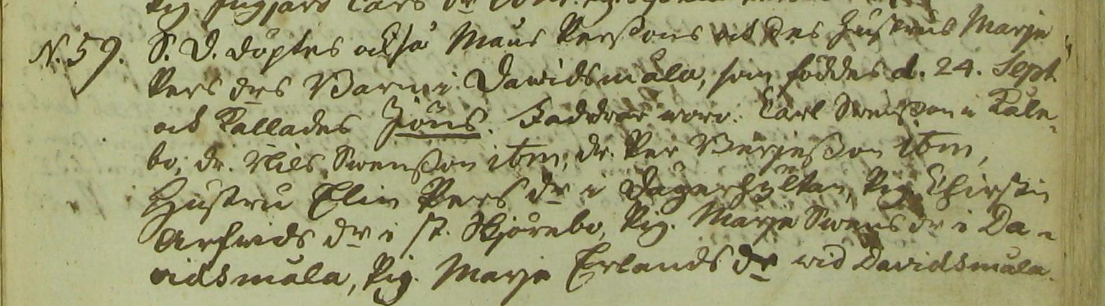 N. 59. S. D. döptes också Måns Perssons och des hustrus Marja
Pers drs Barn i Dawidsmåla, som föddes d. 24. Sept.
och kallades Jöns. Faddrar woro. Carl Swensson i Kåle-
bo, dr. Nils Swensson ibm, dr. Per Börjesson ibm,
Hustru Elin Pers dr i Dågerhyltan, Pig. Chirstin
Arfwids dr i st. Skjörebo, Pig. Marja Swens dr i Da-
vidsmåla, Pig. Marja Erlands dr wid Davidsmåla.